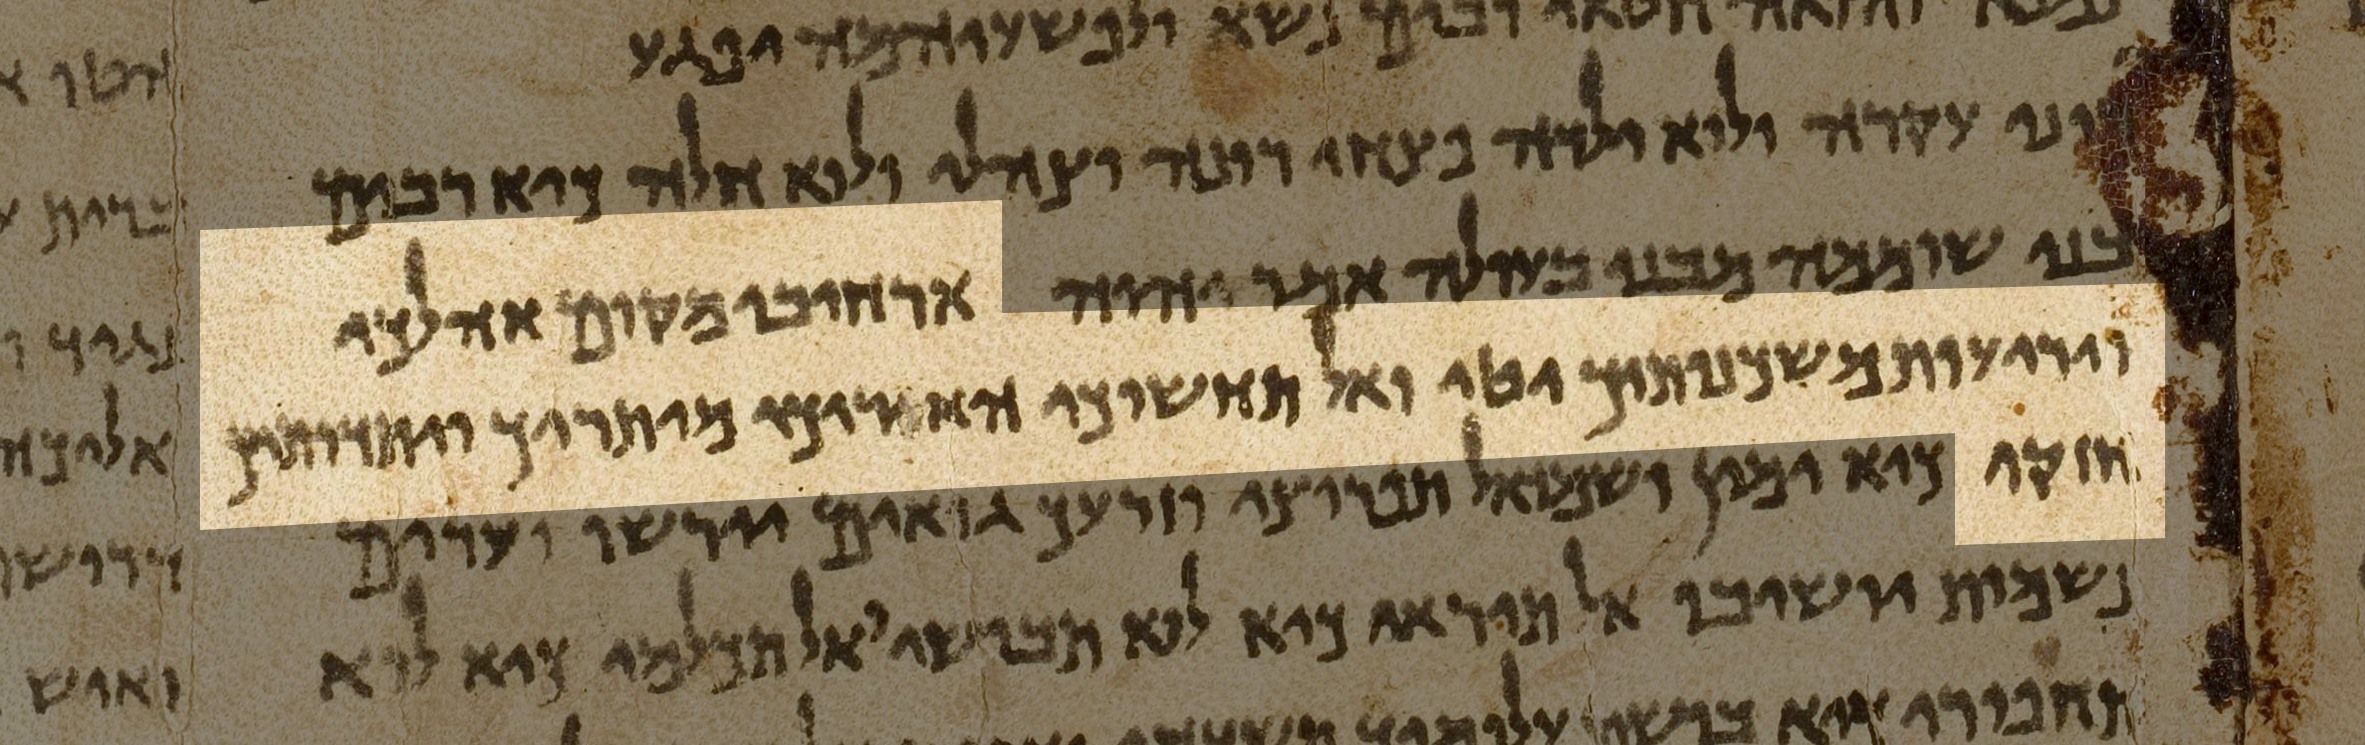 ולפשעיהמה יפגע
רוני עקרה ולוא ילדה פצחי רונה וצהלי ולוא חלה כיא רבים
בני שוממה מבני בעולה אמר יהוה ארחיבי מקום אהלכי
ויריעות משכנותיך יטי ואל תחשוכי האריכי מיתריך ויתדותיך
חזקי כיא ימין ושמאל תפרוצי וזרעך גואים יירשו וערים
נשמות יושיבו אל תיראי כיא לוא תבושי ואל תכלמי כיא לוא
תחפירי כיא